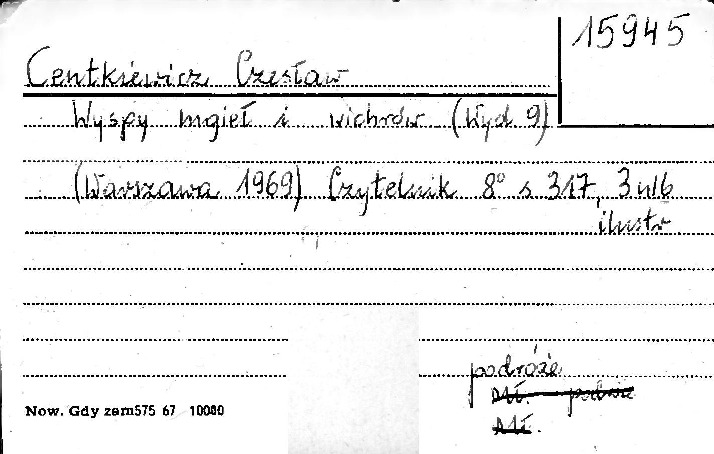 15945
Centkiewicz Czesław
Wyspy mgieł i wichrów (Wyd 9)
(Warszawa 1969) Czytelnik 8° s 317, 3 nlb
ilustr
podróże
Now. Gdy zam 575 67 10000